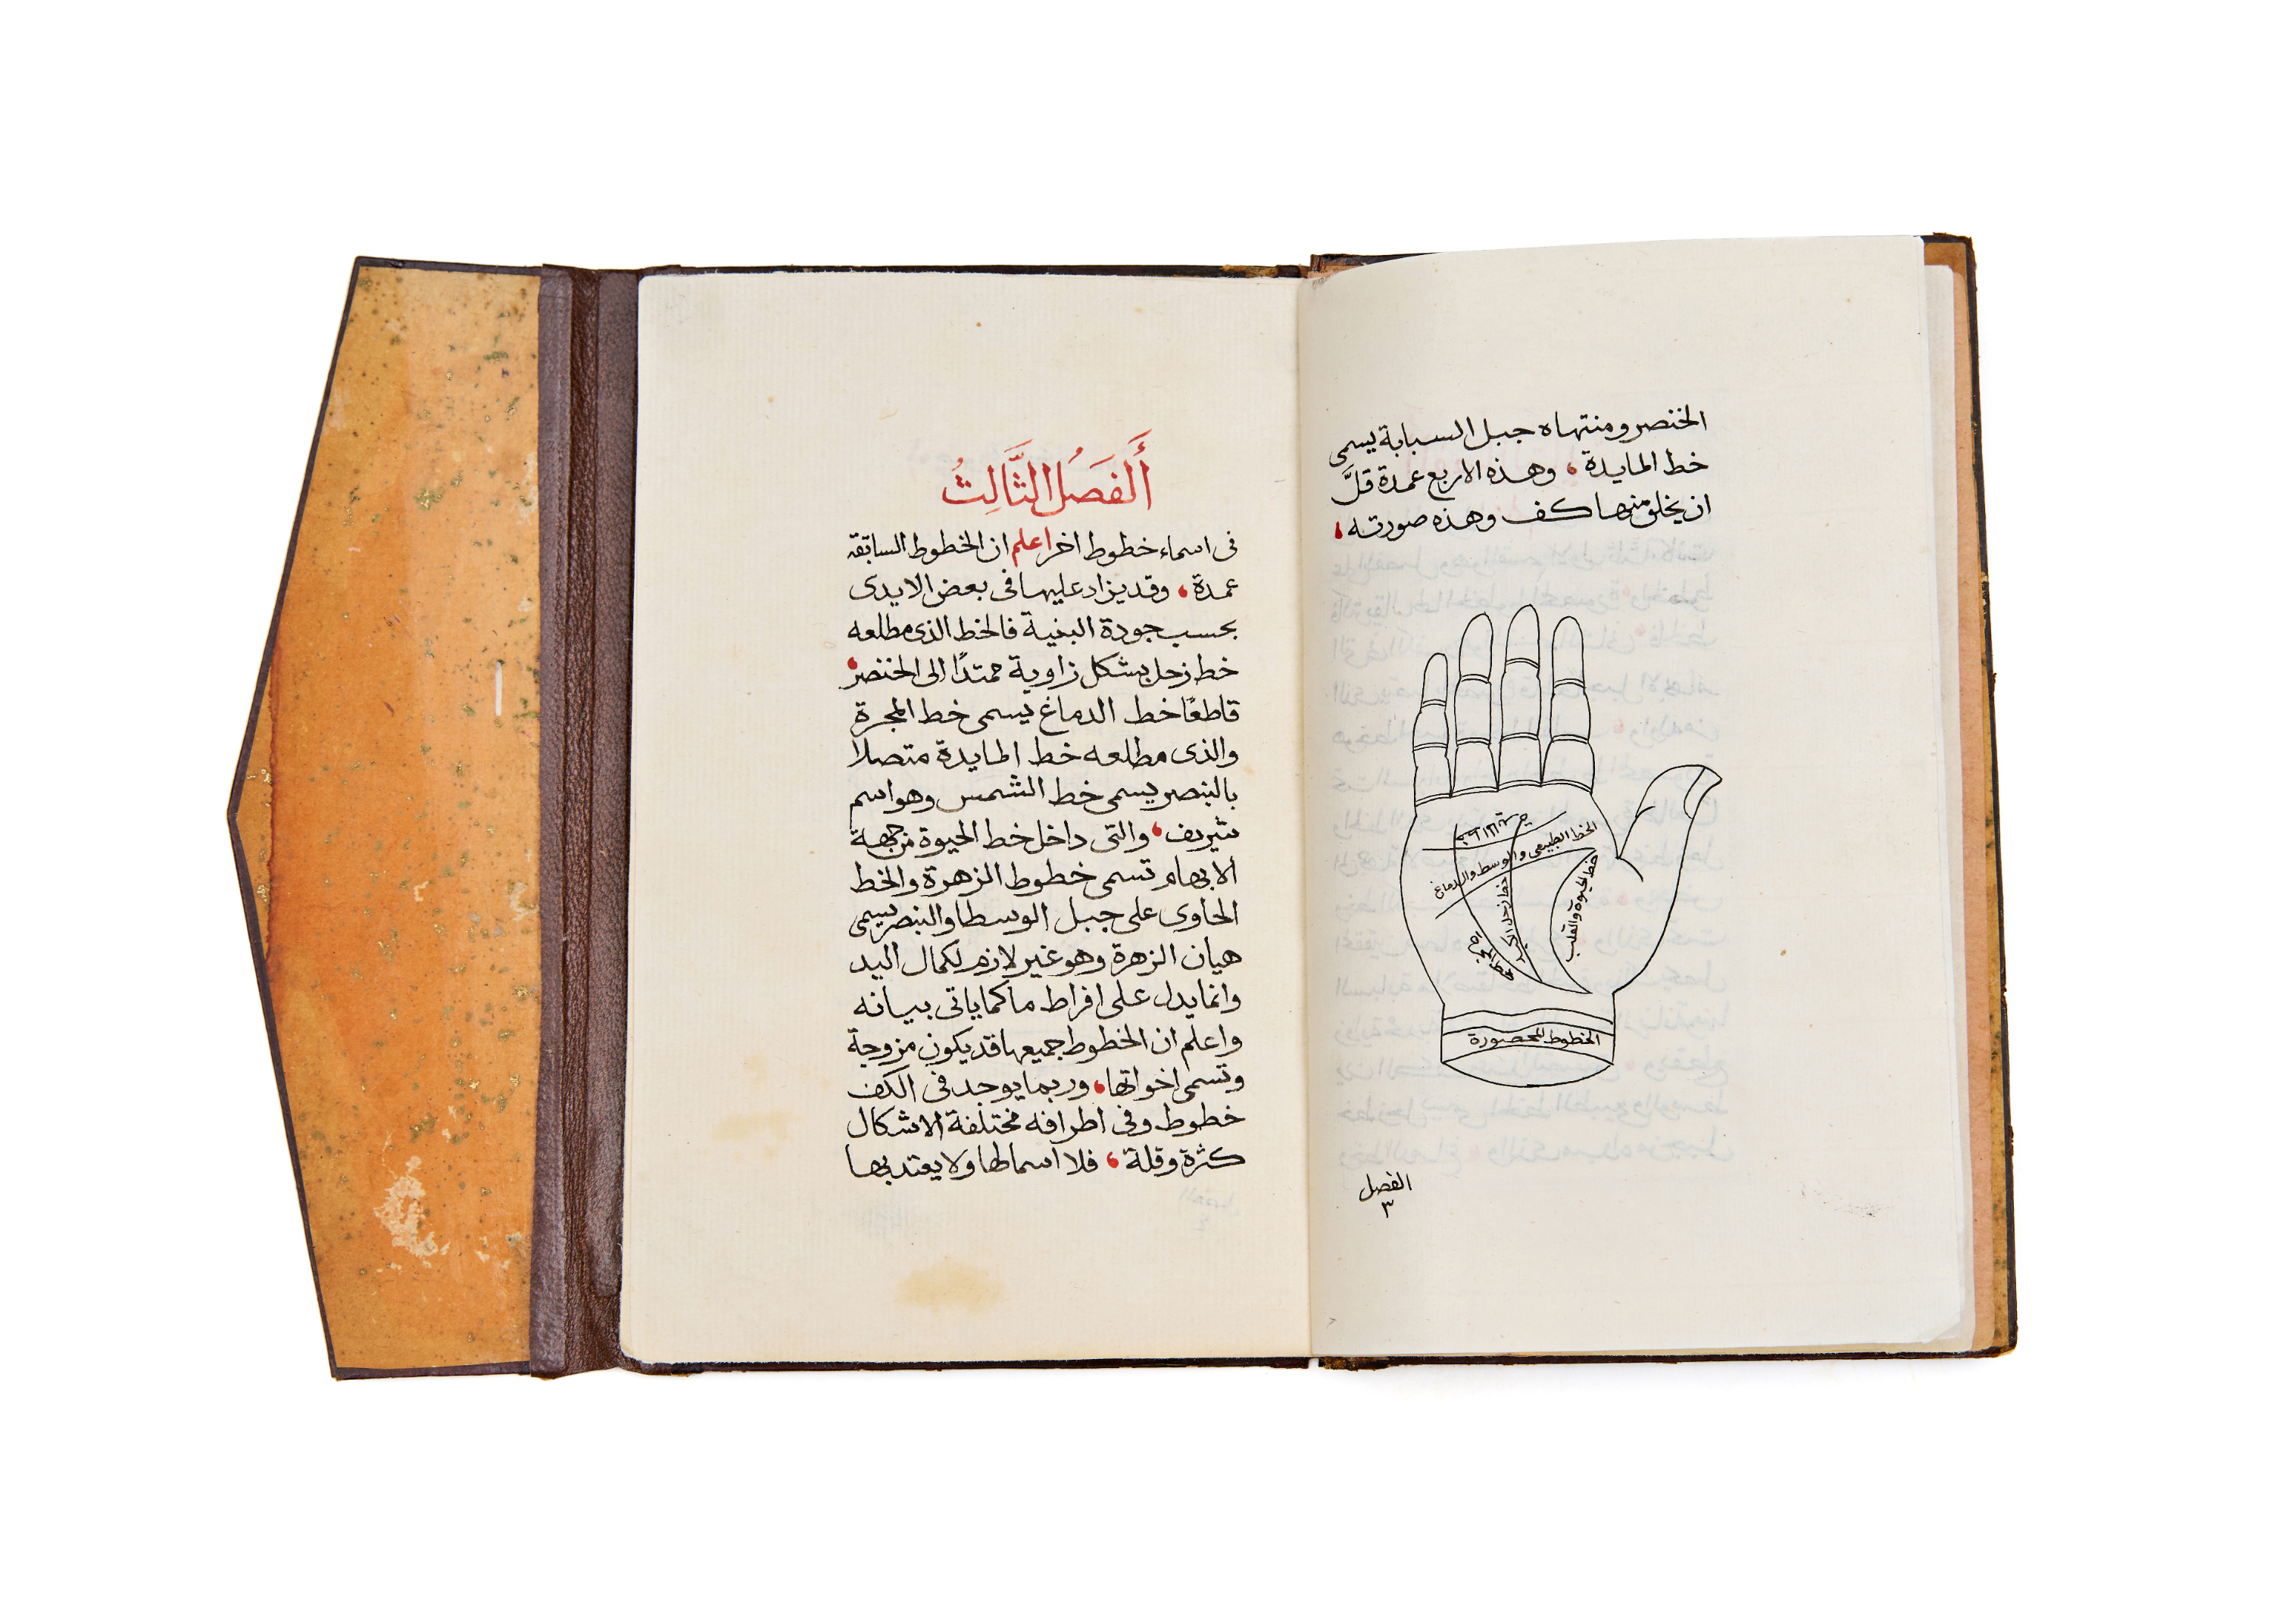 الخنصر ومنتهاه جبل السبابة يسمى
خط المايدة، وهذه الاربع عمدة قلَّ
ان يخلق منها كف وهذه صورته،
الخط الطبيعى والوسط والدماغ
خط الحيوة والقلب
خط زحل
الخطوط المحصورة
الفصل
٣
أَلفَصلُ الثَّالِثُ
فى اسماء خطوط اخر اعلم ان الخطوط السابقة
عمدة، وقد يزاد عليها فى بعض الايدى
بحسب جودة البنية فالخط الذى مطلعه
خط زحل بشكل زاوية ممتدًا الى الخنصر،
قاطعًا خط الدماغ يسمى خط المجرة
والذى مطلعه خط المايدة متصلا
بالبنصر يسمى خط الشمس وهو اسم
شريف، والتى داخل خط الحيوة من جهة
الابهام تسمى خطوط الزهرة والخط
الحاوى على جبل الوسطا والبنصر يسمى
هيان الزهرة وهو غير لازم لكمال اليد
وانما يدل على افراط ما كما ياتى بيانه
واعلم ان الخطوط جميعها قد يكون مزوجة
وتسمى اخواتها، وربما يوجد فى الكف
خطوط وفى اطرافه مختلفة الاشكال
كثرة وقلة، فلا اسما لها ولا يعتد بها